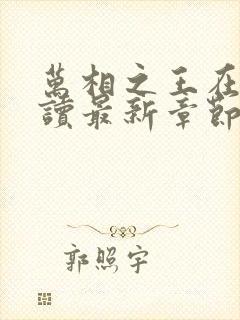 萬相之王在
讀最新章節
郭照宇